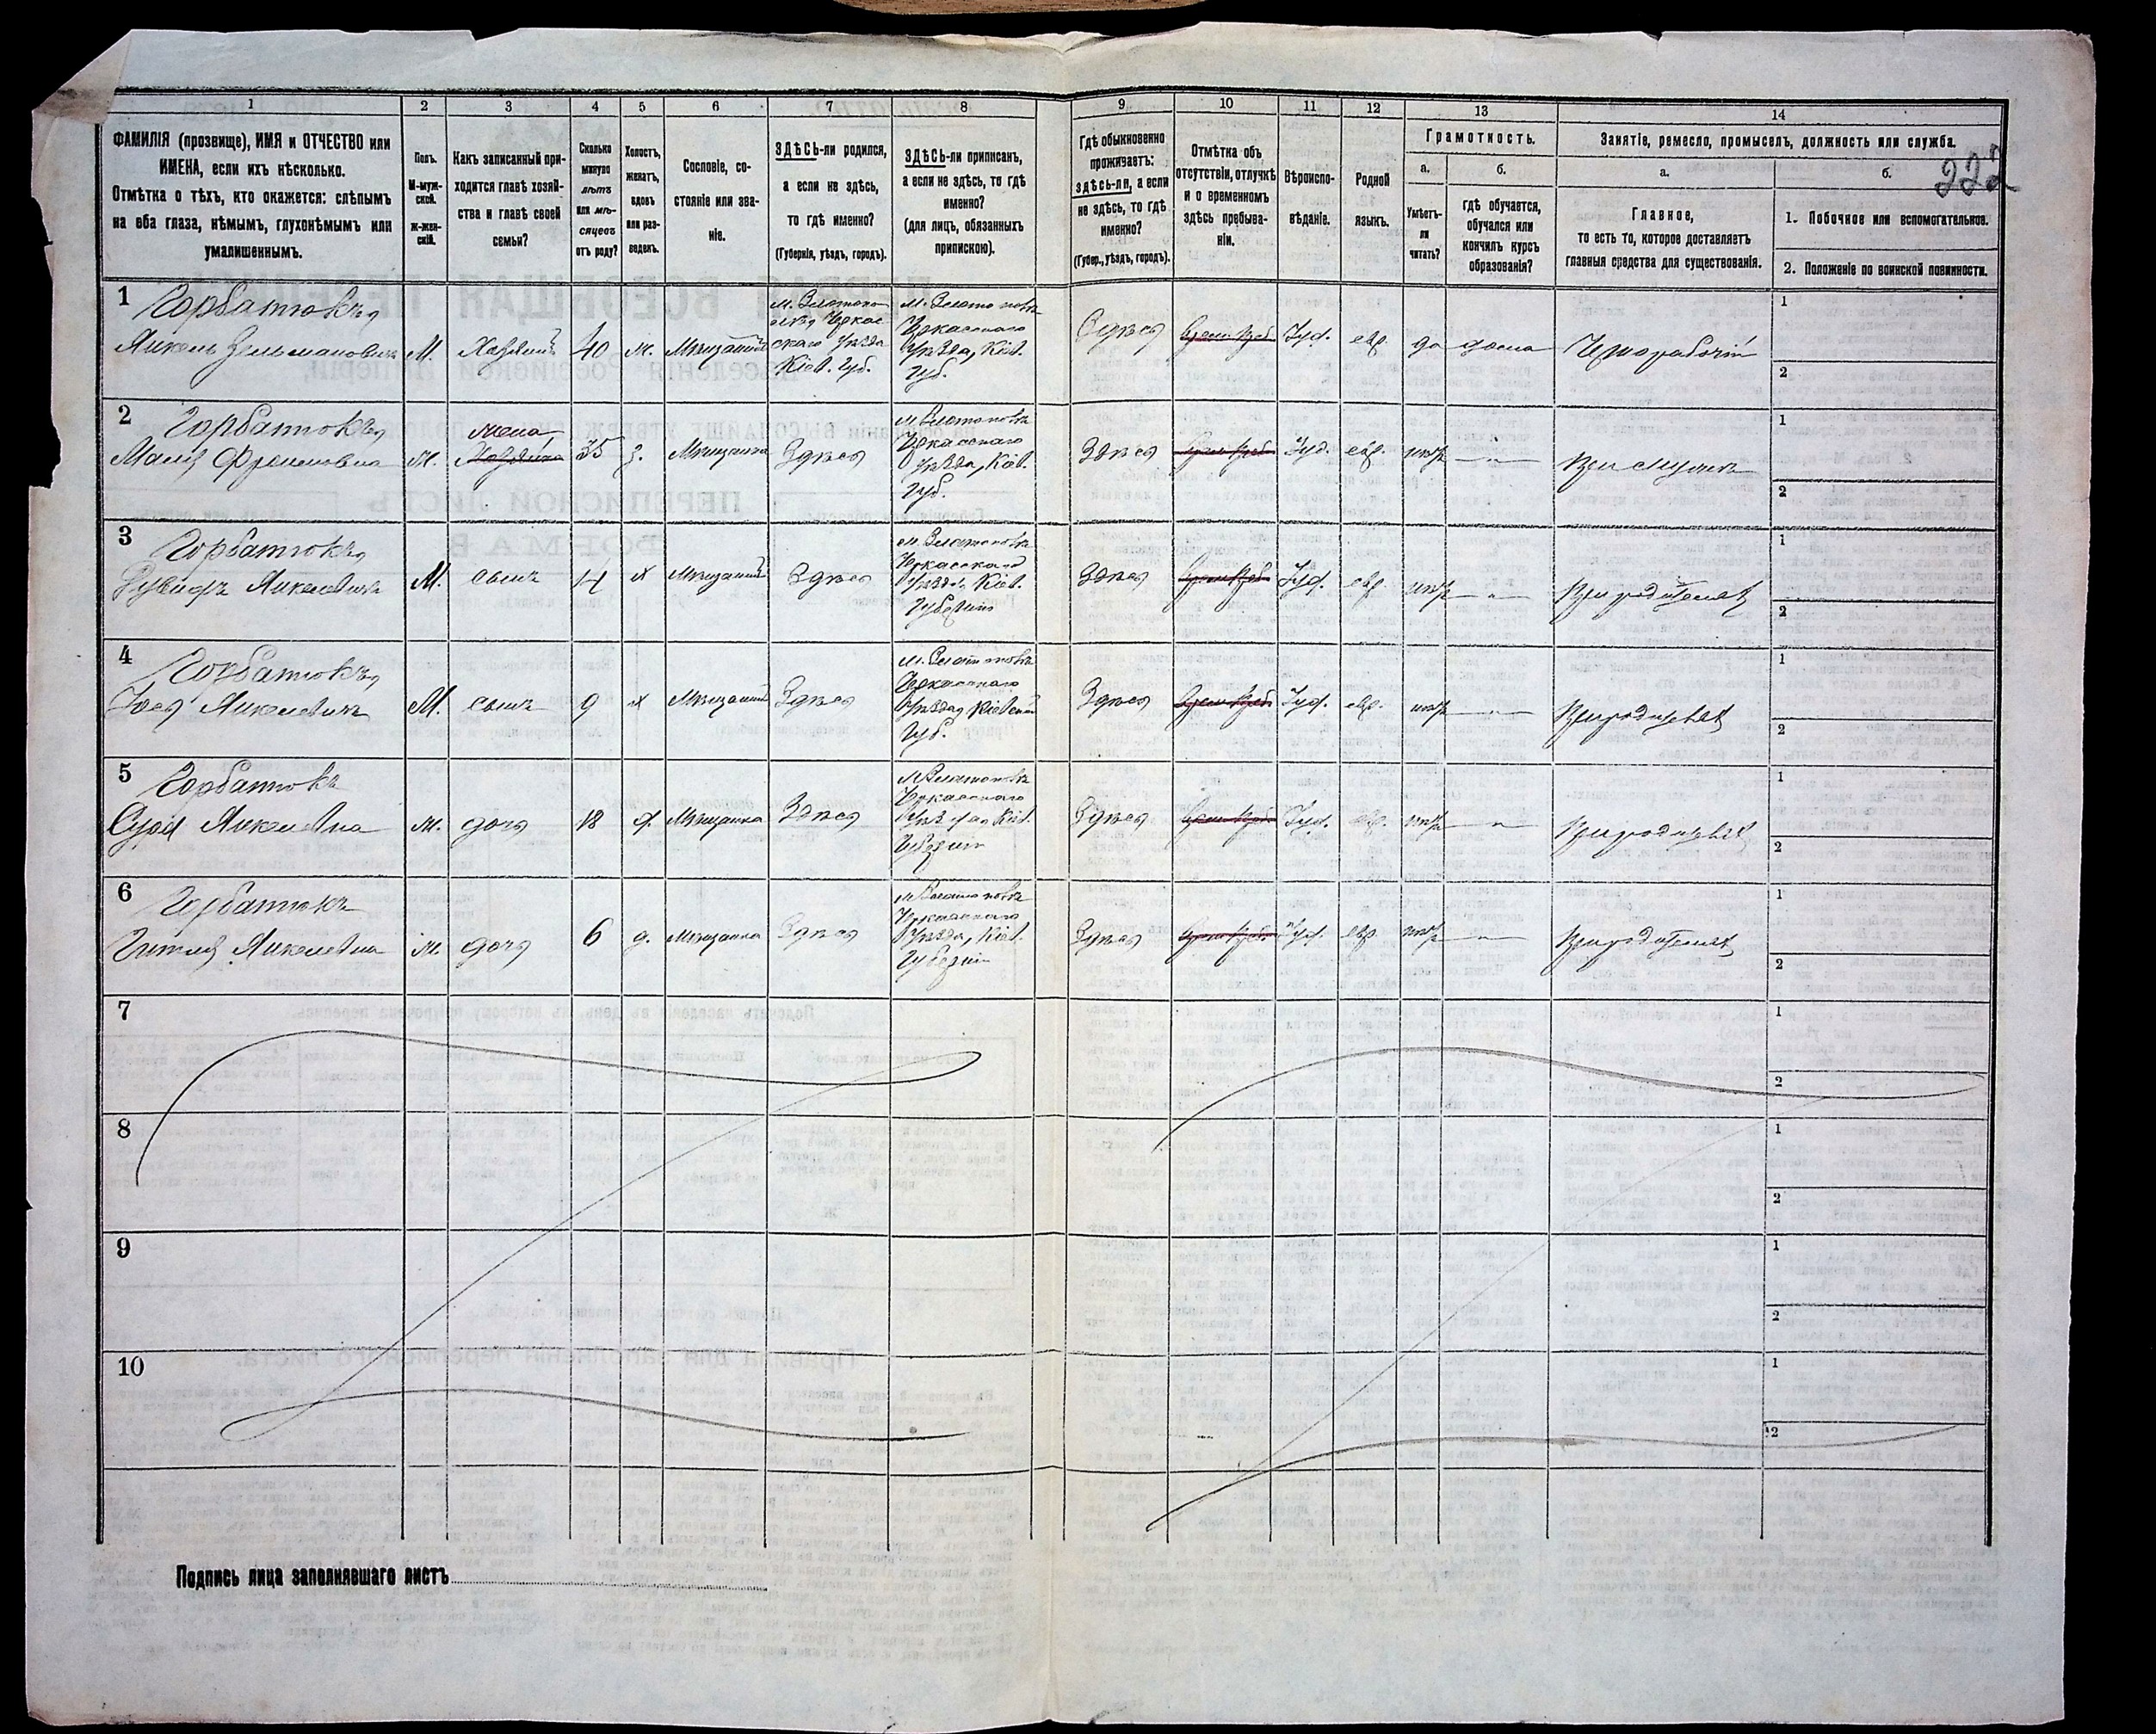 222
1 2 3 4 5 6 7 8 9 10 11 12 13 14
ФАМИЛІЯ (прозвище), ИМЯ и ОТЧЕСТВО или
ИМЕНА, если ихъ нѣсколько.
Отмѣтка о тѣхъ, кто окажется: слѣпымъ
на оба глаза, нѣмымъ, глухонѣмымъ или
умалишеннымъ.
Полъ.
М-муж-
ской.
ж-жен-
скій.
Какъ записанный при-
ходится главѣ хозяй-
ства и главѣ своей
семьи?
Сколько
минуло
лѣтъ
или мѣ-
сяцевъ
отъ роду?
Холостъ,
женатъ,
вдовъ
или раз-
веденъ.
Сословіе, со-
стояніе или зва-
ніе.
ЗДѢСЬ-ли родился,
а если не здѣсь,
то гдѣ именно?
(Губернія, уѣздъ, городъ).
ЗДѢСЬ-ли приписанъ,
а если не здѣсь, то гдѣ
именно?
(для лицъ, обязанныхъ
припискою).
Гдѣ обыкновенно
проживаетъ:
здѣсь-ли, а если
не здѣсь, то гдѣ
именно?
(Губер., уѣздъ, городъ).
Отмѣтка объ
отсутствіи, отлучкѣ
и о временномъ
здѣсь пребыва-
ніи.
Вѣроиспо-
вѣданіе.
Родной
языкъ.
Грамотность.
а.
Умѣетъ-
ли
читать?
б.
гдѣ обучается,
обучался или
кончилъ курсъ
образованія?
Занятіе, ремесло, промыселъ, должность или служба.
а.
Главное,
то есть то, которое доставляетъ
главныя средства для существованія.
б.
1. Побочное или вспомогательное.
2. Положеніе по воинской повинности.
1 Горбатюкъ
Янкель Зельмановичъ М. Хозяинъ 40 ж. Мѣщанинъ
Черкас-
скаго Уѣзда
Кіев. Губ.
Черкасскаго
Уѣзда, Кіев.
Губ.
Іуд. евр. да дома Чернорабочій
1
2
2 Горбатюкъ
жена
Хозяйка 35 з. Мѣщанка Здѣсь
Черкасскаго
Уѣзда, Кіев.
Губ.
Здѣсь Іуд. евр. нѣтъ — „ — При мужѣ
1
2
3 Горбатюкъ
Янкелевичъ М. сынъ х Мѣщанинъ Здѣсь
Черкасскаго
Уѣзда Кіев.
Губерніи
Здѣсь Іуд. евр. нѣтъ — „ — При родителяхъ
1
2
4 Горбатюкъ
Янкелевичъ М. сынъ 9 х Мѣщанинъ Здѣсь
Черкасскаго
Уѣзда Кіевской
Губ.
Здѣсь Іуд. евр. нѣтъ — „ — При родителяхъ
1
2
5 Горбатюкъ
Сура Янкелевна дочь 18 д. Мѣщанка Здѣсь
Черкасскаго
Уѣзда Кіев.
Губерніи
Здѣсь Іуд. евр. нѣтъ — „ — При родителяхъ
1
2
6 Горбатюкъ
Гитля Янкелевна дочь 6 д. Мѣщанка Здѣсь
Черкасскаго
Уѣзда, Кіев.
Губерніи
Здѣсь Іуд. евр. нѣтъ — „ — При родителяхъ
1
2
7
1
2
8
1
2
9
1
2
10
1
2
Подпись лица заполнявшаго листъ